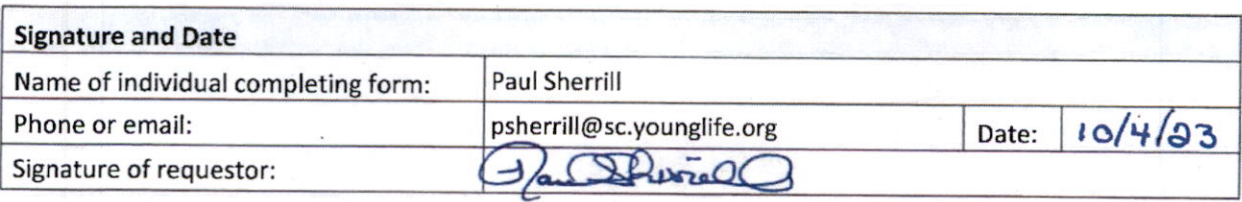 Signature and Date
Name of individual completing form: Paul Sherrill
Phone or email: psherrill@sc.younglife.org Date: 10/4/23
Signature of requestor: Paul Sherrill